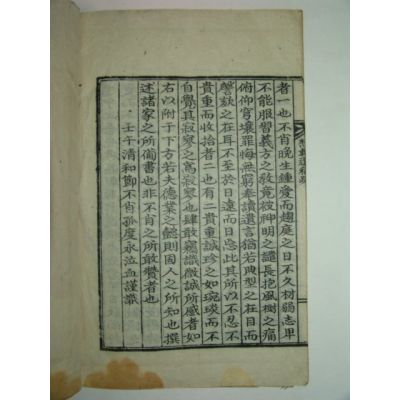 者一也不肖晩生鍾愛而趨庭之日不久材弱志卑
不能服習義方之敎竟被神明之譴長抱風樹之痛
俯仰穹壤罪悔無窮奉讀遺言猶若典型之在目而
謦欬之在耳不至於日遠而日忘此其所以不忍不
貴重而收拾者二也有二貴重誠珍之如琬琰而不
自覺其寂寥之爲寂寥也肆敢竊識微誠所感者如
右以附于下方若夫德業之懿則固人之所知也撰
述諸家之所備書也非不肖之所敢贅者也
壬午淸和節不肖孫度永泣血謹識